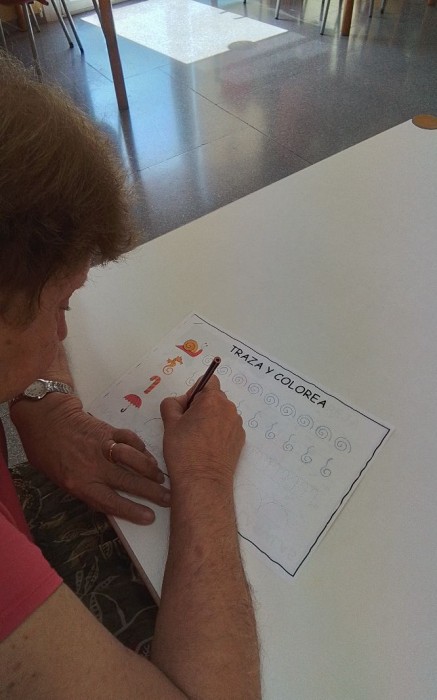 TRAZA Y COLOREA